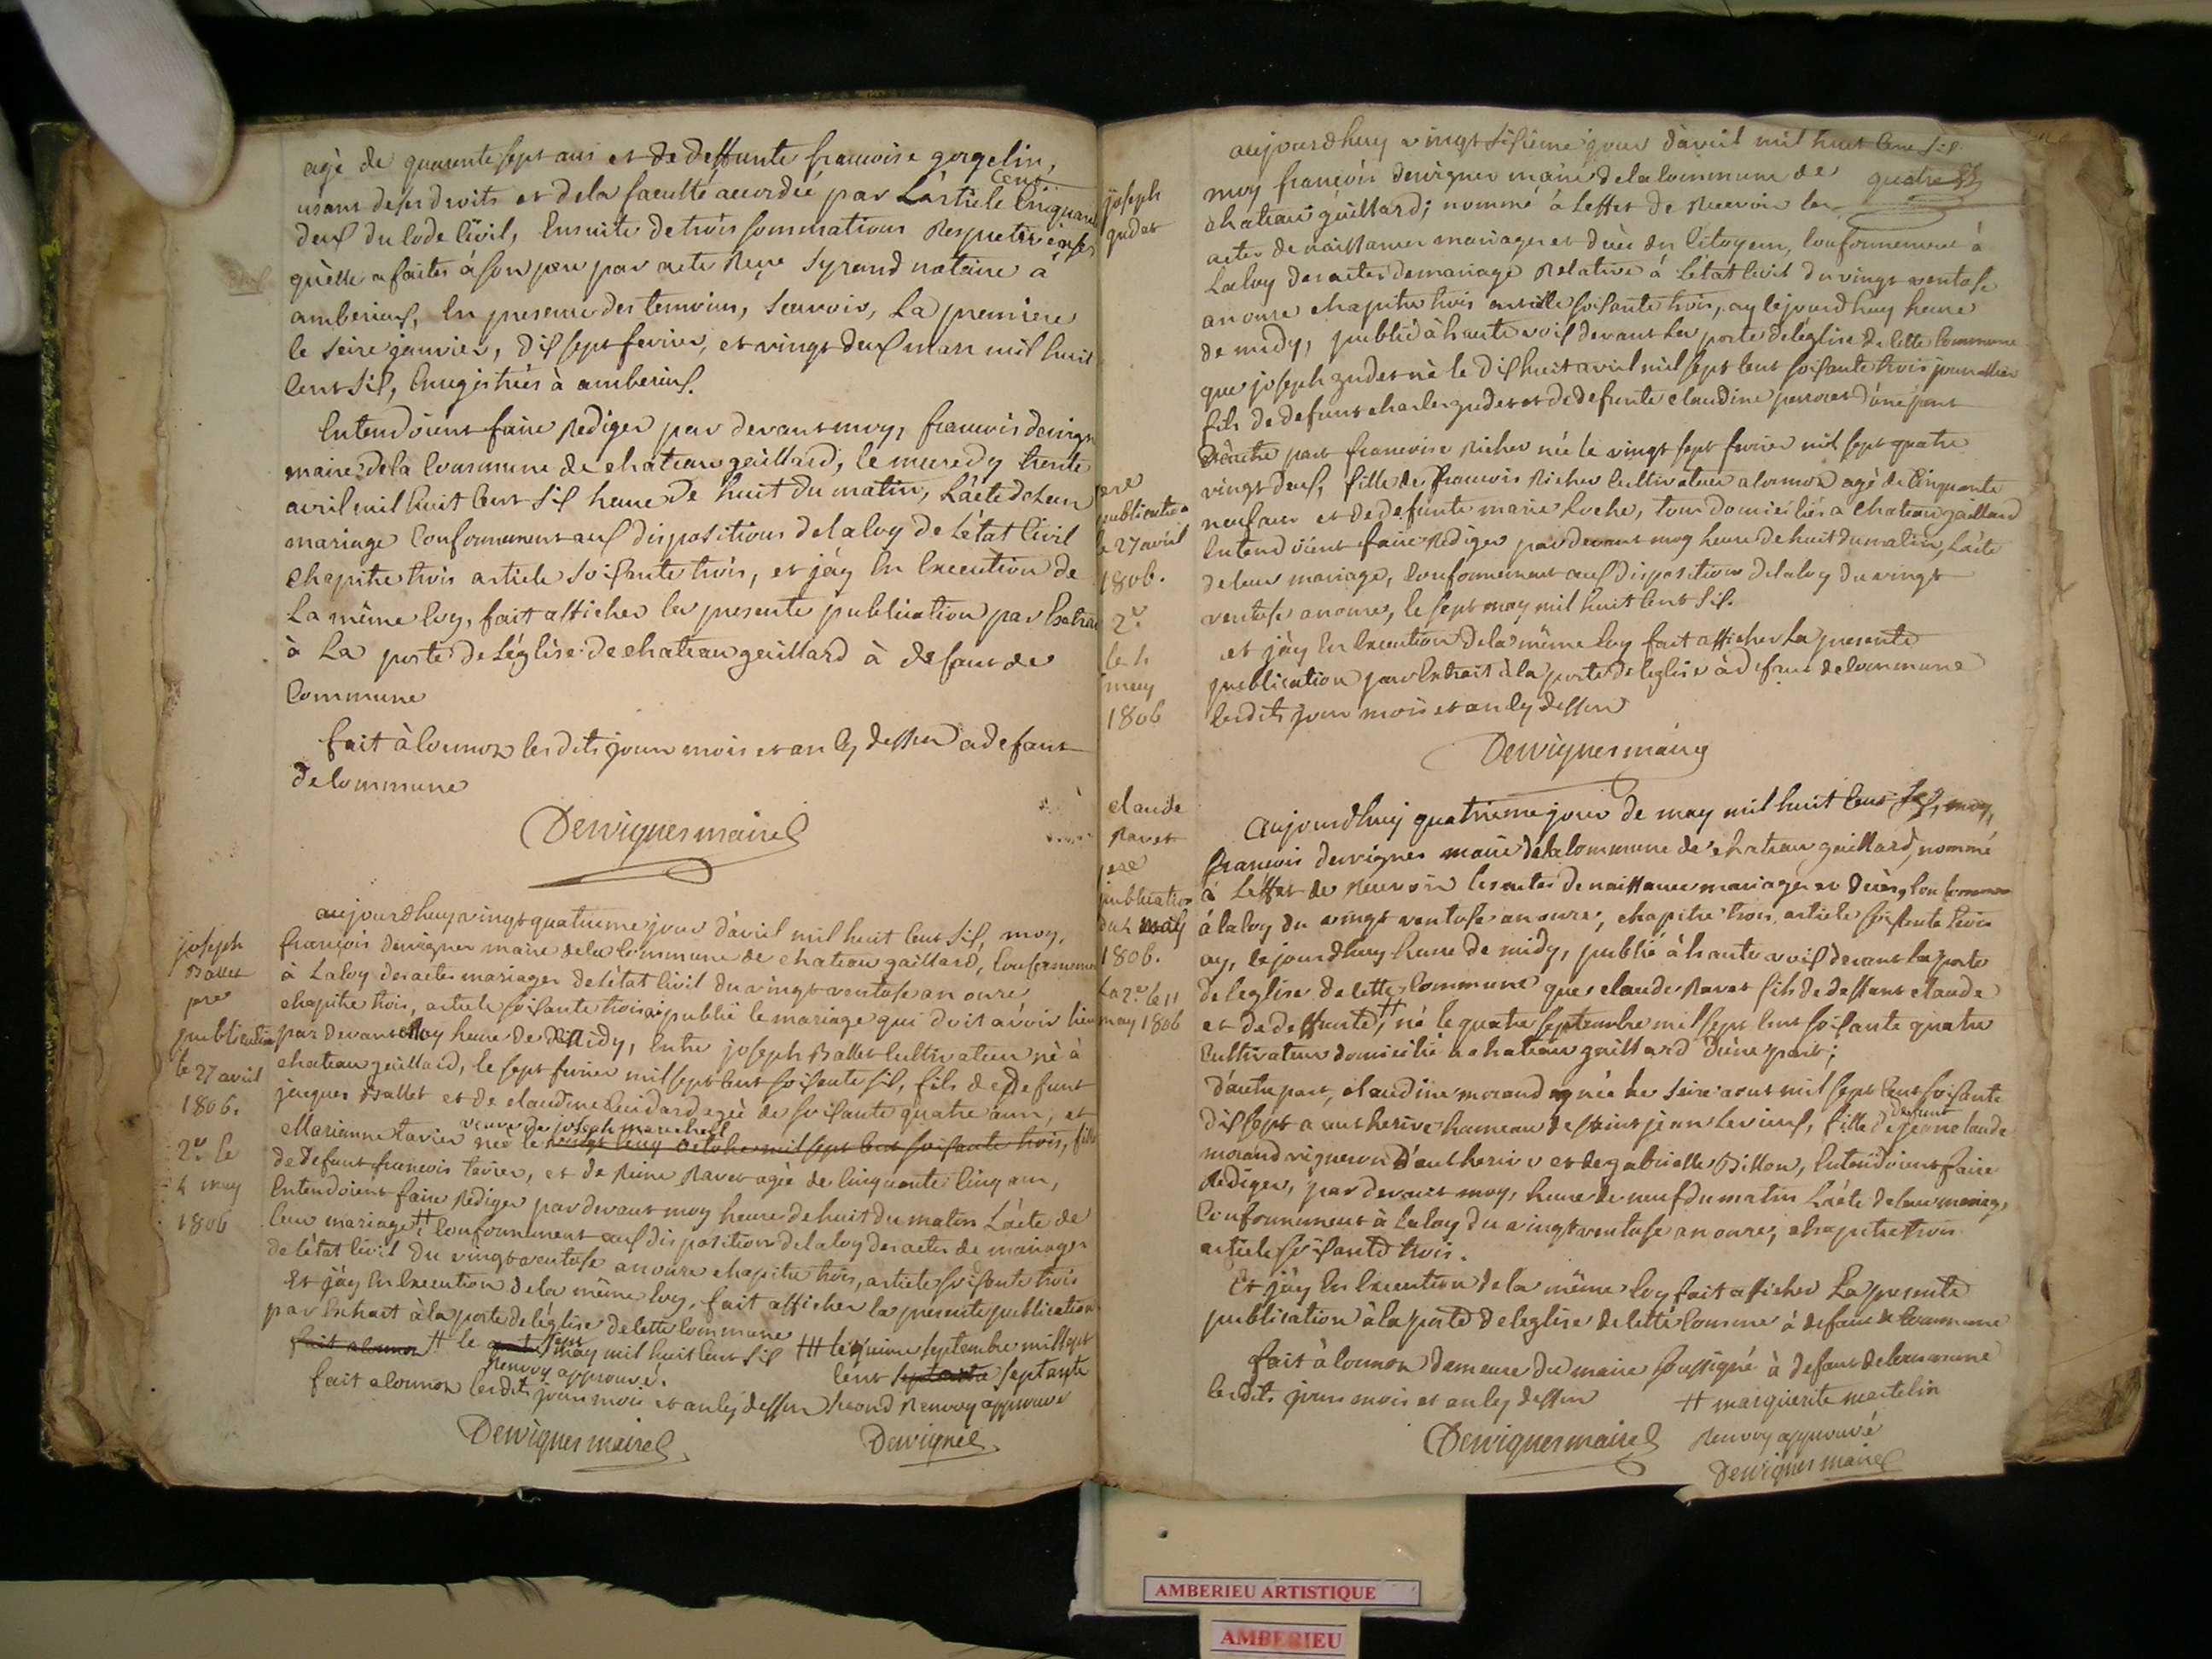 agé de quarente sept ans et de deffunte francoise gorgelin,
cent
usant de ses droits et de la faculté accordée par L'article Cinquante
deux du Code Civil, Ensuite de trois sommations Respectueuses
quelle a faites à son pere par acte Reçu Syrand notaire à
amberieux, En presence des temoins, Scavoir, La premiere
le seize janvier, dix sept fevrier, et vingt deux mars mil huit
Cent Six, Enregistrées à amberieux.
Entendoient faire Rediger par devant moy, francois dervignes
maire de la Commune de chateaugaillard, le mercredy trente
avril mil huit Cent Six heure de huit du matin, L'acte de Leur
mariage Conformement aux dispositions de la loy de L'état Civil
chapitre trois article soixante trois, et j'ay En Execution de
La même loy, fait afficher la presente publication par Extrait
à La porte de L'église de chateaugaillard à defaut de
Commune
fait à Cormoz les dits jour mois et an cy dessus a defaut
de Commune
Dervignes maire
joseph
Ballet
pre
publication
le 27 avril
1806.
2e Le
4 may
1806
aujourdhuy vingt quatrieme jour d'avril mil huit Cent Six, moy,
françois dervignes maire de la Commune de chateaugaillard, Conformement
à La loy des actes mariages de l'état Civil du vingt ventose an onze
chapitre trois, article soixante trois, ai publié le mariage qui doit avoir lieu
par devant Moy heure de Midy, Entre joseph Ballet Cultivateur né à
chateaugaillard, le sept fevrier mil sept Cent soixante six, fils de defunt
jacques Ballet et de claudine agée de soixante quatre ans, et
veuve de joseph
Marianne tavier née le vingt Cinq octobre mil sept Cent soixante trois, fille
de defunt francois tavier, et de Reine Ravet agée de Cinquante Cinq ans,
Entendoient faire Rediger par devant moy heure de huit du matin L'acte de
Leur mariage # Conformement aux disposition de la loy des actes de mariages
de l'état Civil du vingt ventose an onze chapitre trois, article soixante trois
Et j'ay En Execution de la même loy, fait afficher la presente publication
par Extrait à la porte de léglise de Cette Commune
fait a Cormoz # le sept may mil huit Cent Six ### le quinze septembre mil sept
Renvoy approuvé. Cent septante septante
fait a Cormoz les dits jours mois et an cy dessus second Renvoy approuvé
Dervignes maire Dervignes
joseph
gudet
1ere
publication
le 27 avril
1806.
2e
le 4
may
1806
aujourdhuy vingt sixieme jour d'avril mil huit Cent Six
moy françois dervignes maire de la Commune de
chateaugaillard; nommé à Leffet de Recevoir les
actes de naissances mariages et décès des Citoyens, Conformement à
La loy des actes de mariage Relative à L'état Civil du vingt ventose
an onze chapitre trois article soixante trois, ay Cejourdhuy heure
de midy, publié à haute voix devant la porte de léglise de Cette Commune
que joseph gudet né le dix huit avril mil sept Cent soixante trois journallier
fils de defunt charles gudet et de defunte claudine perret d'une part
D'autre part francoise Richer née le vingt sept fevrier mil sept quatre
vingt deux, fille de francois Richer Cultivateur a Cormoz agé de Cinquante
neuf ans et de defunte marie Roche, tous domiciliés à Chateaugaillard
Entendoient faire Rediger par devant moy heure de huit du matin, L'acte
de leur mariage, Conformement aux disposition de la loy du vingt
ventose an onze, le sept may mil huit Cent Six.
et j'ay En Execution de la même loy fait afficher La presente
publication par Extrait à la porte de léglise à defaut de Commune
les dits jour mois et an cy dessus
Dervignes maire
claude
Ravet
1ere
publication
du 4 may
1806.
La 2e le 11
may 1806
Aujourdhuy quatrieme jour de may mil huit Cent Six, moy,
francois dervignes maire de la Commune de chateaugaillard, nommé
à Leffet de Recevoir les actes de naissances mariages et decès,
à la loy du vingt ventose an onze, chapitre trois article soixante trois
ay, Cejourdhuy heure de midy, publié à haute voix devant la porte
de leglise de Cette Commune que claude Ravet fils de deffunt claude
et de deffunte # né le quatre septembre mil sept Cent soixante quatre
Cultivateur domicilié à chateaugaillard d'une part;
d'autre part, claudine morand née le seize aout mil sept Cent soixante
defunt
dix sept a hameau de saint jean Levieux, fille de jean claude
morand vigneron et de gabrielle Billon, Entendoient faire
Rediger, par devant moy, heure de neuf du matin L'acte de leur mariage
Conformement à La loy du vingt ventose an onze, chapitre trois
article soixante trois.
Et j'ay En Execution de la même loy fait afficher La presente
publication à la porte de leglise de Cette Comune à defaut de Commune
fait à Cormoz demeure du maire soussigné à defaut de Commune
les dits jours mois et an cy dessus # marguerite martelin
Dervignes maire Renvoy approuvé
Dervignes maire
AMBERIEU ARTISTIQUE
AMBERIEU